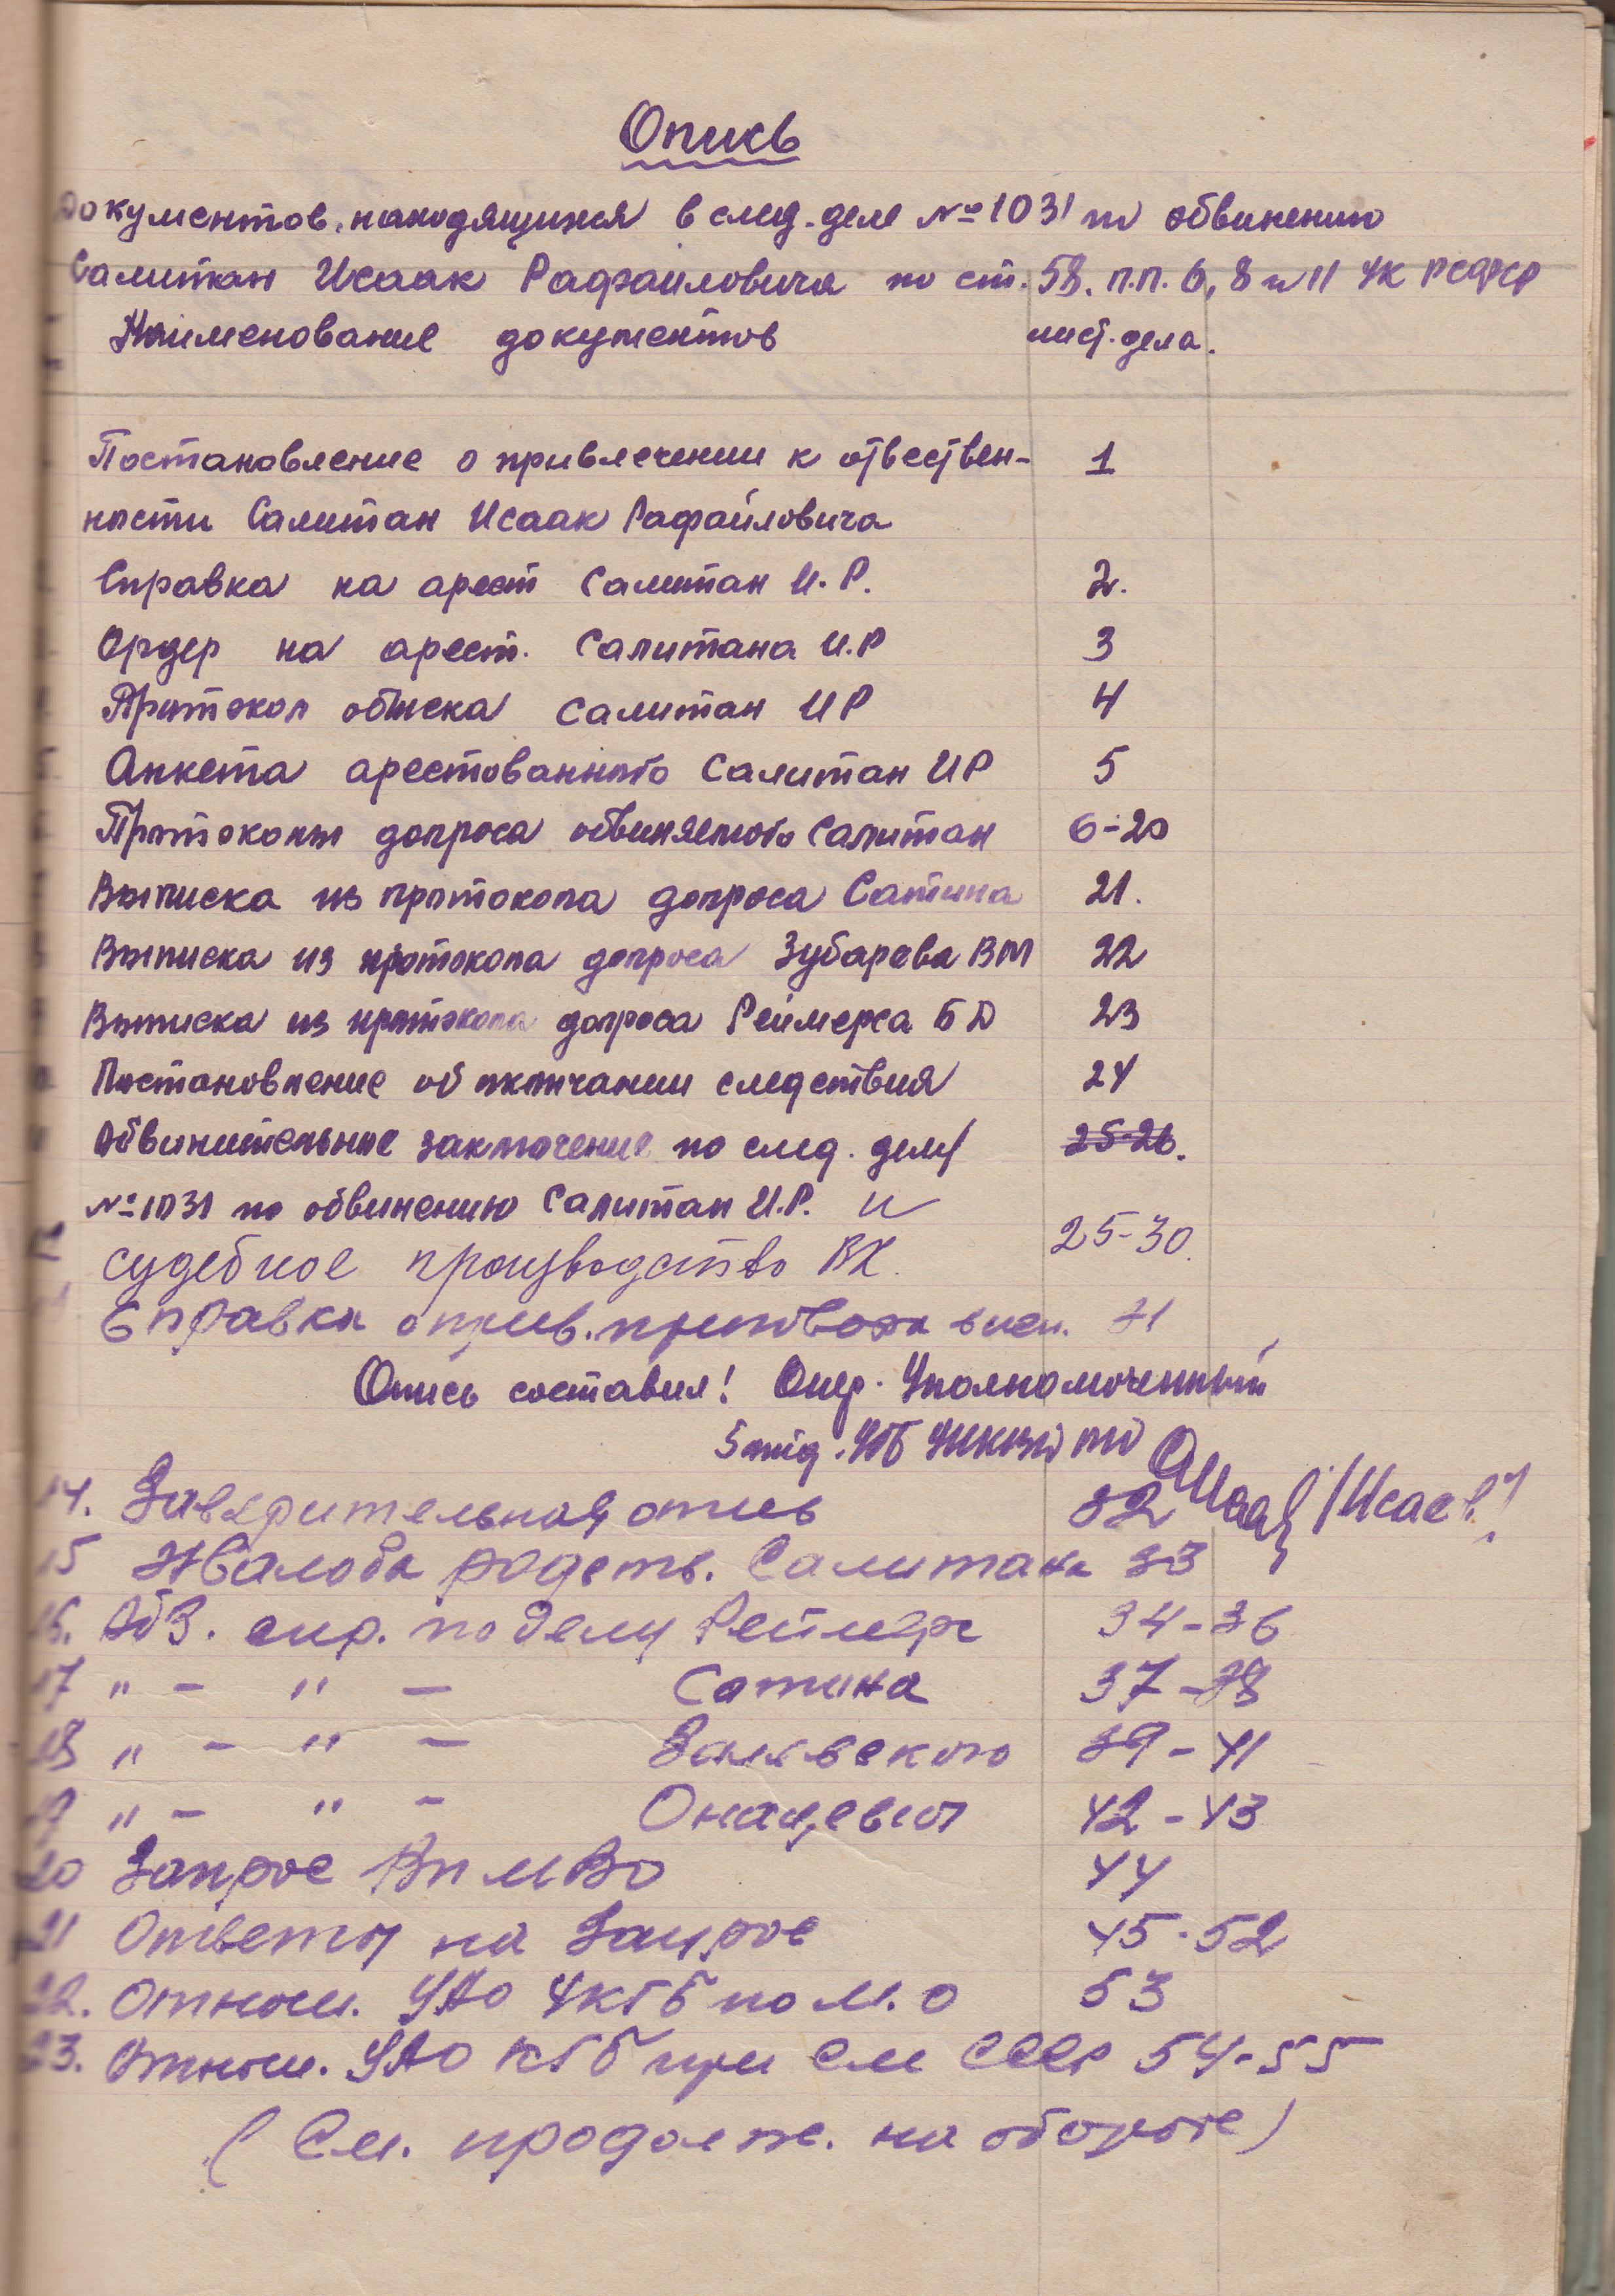 Опись
документов, находящихся в след. деле №1031 по обвинению
Салитан Исаак Рафаиловича по ст. 58. п.п. 6, 8 и 11 УК РСФСР
Наименование документов лист. дела.
Постановление о привлечении к отвествен- 1
ности Салитан Исаак Рафаиловича
Справка на арест Салитан И.Р. 2.
Ордер на арест. Салитана И.Р 3
Протокол обыска Салитан ИР 4
Анкета арестованного Салитан ИР 5
Протоколы допроса обвиняемого Салитан 6-20
Выписка из протокола допроса Сатина 21.
Выписка из протокола допроса Зубарева ВМ 22
Выписка из протокола допроса Реймерса БД 23
Постановление об окончании следствия 24
Обвинительное заключение по след. делу 25-26.
№1031 по обвинению Салитан И.Р. и
судебное производство ВК. 25-30.
Справка о прив. приговора в исп. 31
Опись составил! Опер. Уполномоченный
5 отд. УГБ УНКВД МО /Исаев/
14. Заверительная опись 32
15 Жалоба родств. Салитана 33
16. Обз. спр. по делу Реймерс 34-36
17 " - " - Сатина 37-38
18 " - " - 39-41
19 " - " - Онацевич 42-43
20 Запрос ВП МВО 44
21 Ответы на запрос 45-52
22. Отнош. УАО УКГБ по М.О 53
23. Отнош. УАО КГБ при СМ СССР 54-55
(См. продолж. на обороте)